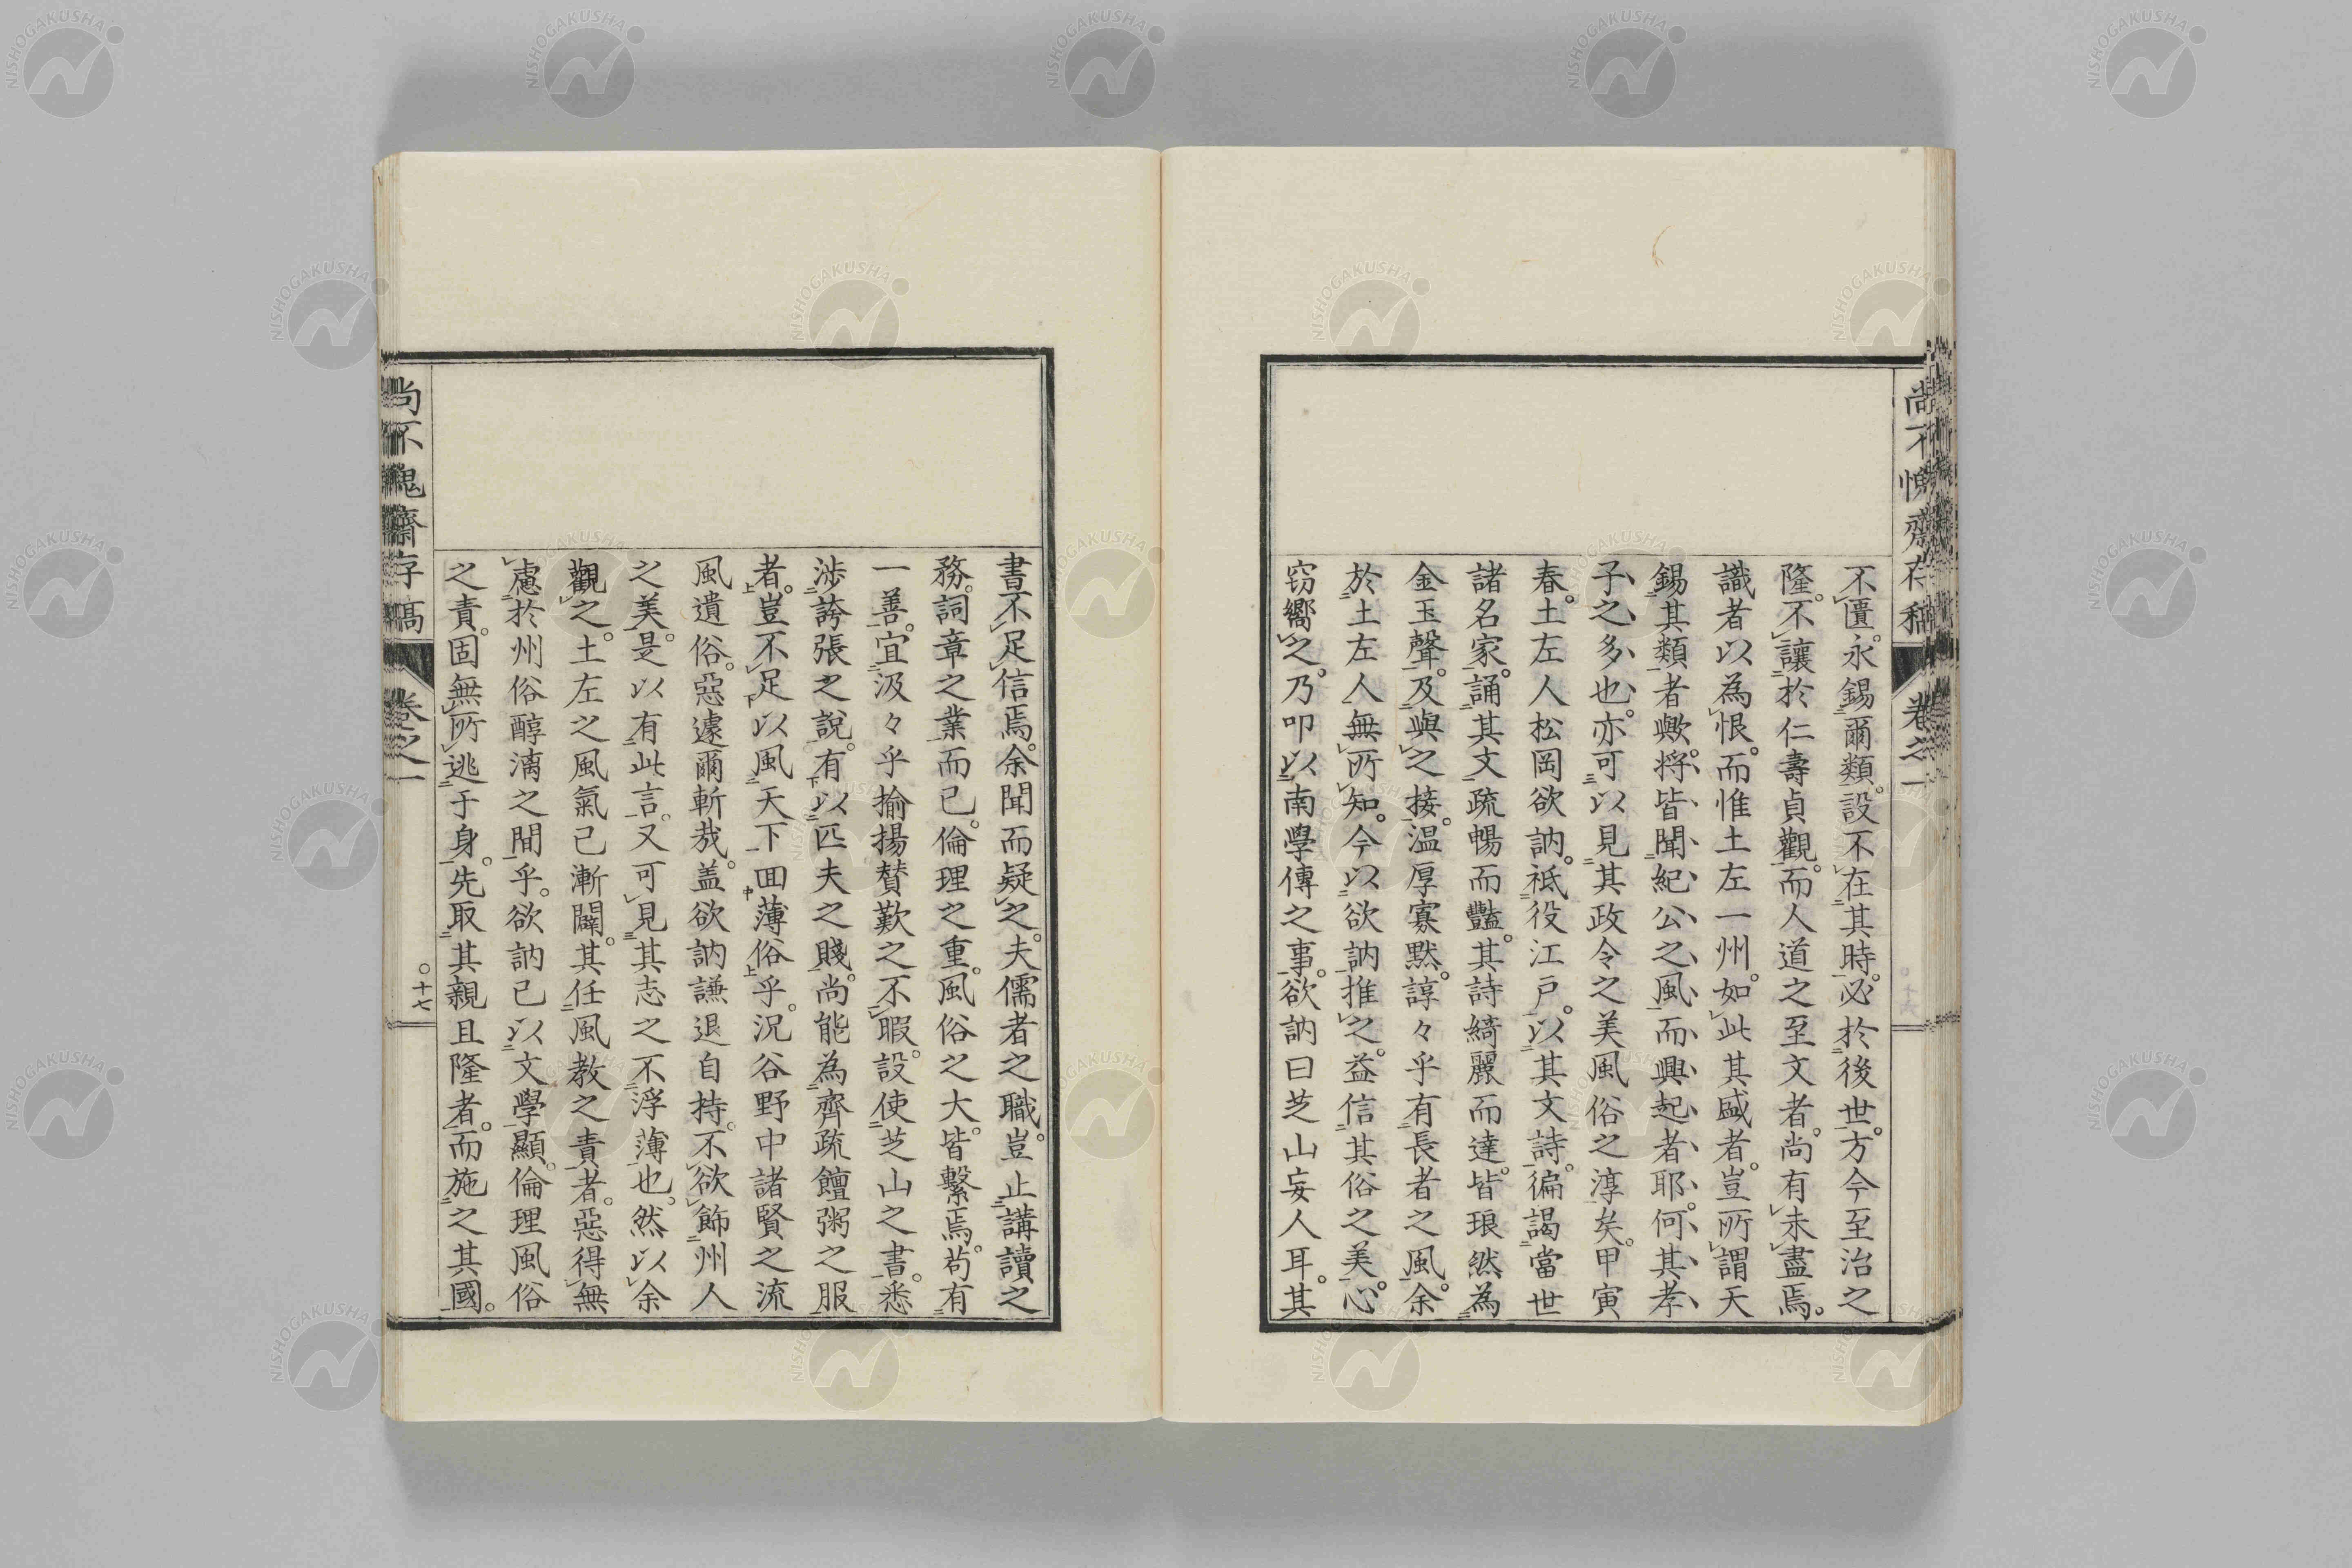 尚不愧齋存稿 卷之一
不匱。永錫爾類。設不在其時。必於後世。方今至治之
隆。不讓於仁壽貞觀。而人道之至文者。尚有未盡焉。
識者以為恨。而惟土左一州。如此其盛者。豈所謂天
錫其類者歟。將皆聞紀公之風而興起者耶。何其孝
子之多也。亦可以見其政令之美風俗之淳矣。甲寅
春。土左人松岡欲訥。祗役江戸。以其文詩。徧謁當世
諸名家。誦其文疏暢而豔。其詩綺麗而達。皆琅然為
金玉聲。及與之接。温厚寡黙。諄々乎有長者之風。余
於土左人無所知。今以欲訥推之。益信其俗之美。心
窃嚮之。乃叩以南學傳之事。欲訥曰芝山妄人耳。其
書不足信焉。余聞而疑之。夫儒者之職。豈止講讀之
務。詞章之業而已。倫理之重。風俗之大。皆繫焉。苟有
一善。宜汲々乎揄揚賛歎之不暇。設使芝山之書。悉
渉誇張之說。有以匹夫之賤。尚能為齊疏饘粥之服
者。豈不足以風天下回薄俗乎。況谷野中諸賢之流
風遺俗。惡遽爾斬哉。盖欲訥謙退自持。不欲飾州人
之美。是以有此言。又可見其志之不浮薄也。然以余
觀之。土左之風氣已漸闢。其任風教之責者。惡得無
慮於州俗醇漓之間乎。欲訥已以文學顯。倫理風俗
之責。固無所逃于身。先取其親且隆者。而施之其國。
尚不愧齋存稿 卷之一 〇十七
NISHOGAKUSHA